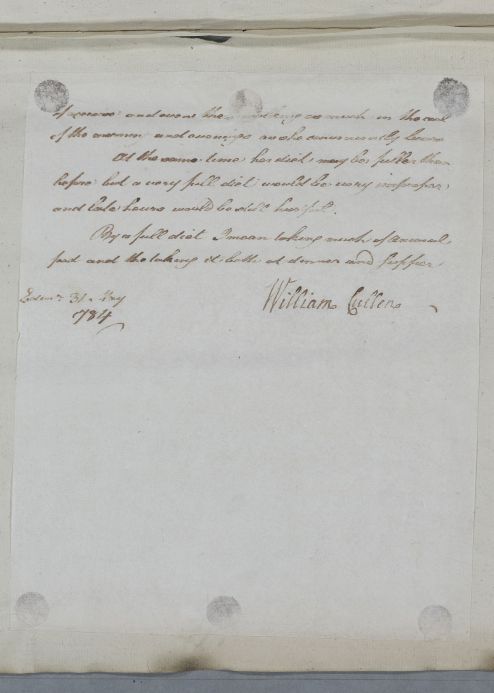 of and even then walking as much in the cool
of the morning and evenings as she conveniently
At the same time her diet may be fuller than
before but a very full diet would be very improper,
and late hours would be still hurtful.
By a full diet I mean taking much of animal
food and the taking it both at dinner and supper.
Edinr. 31 May
784
William Cullen